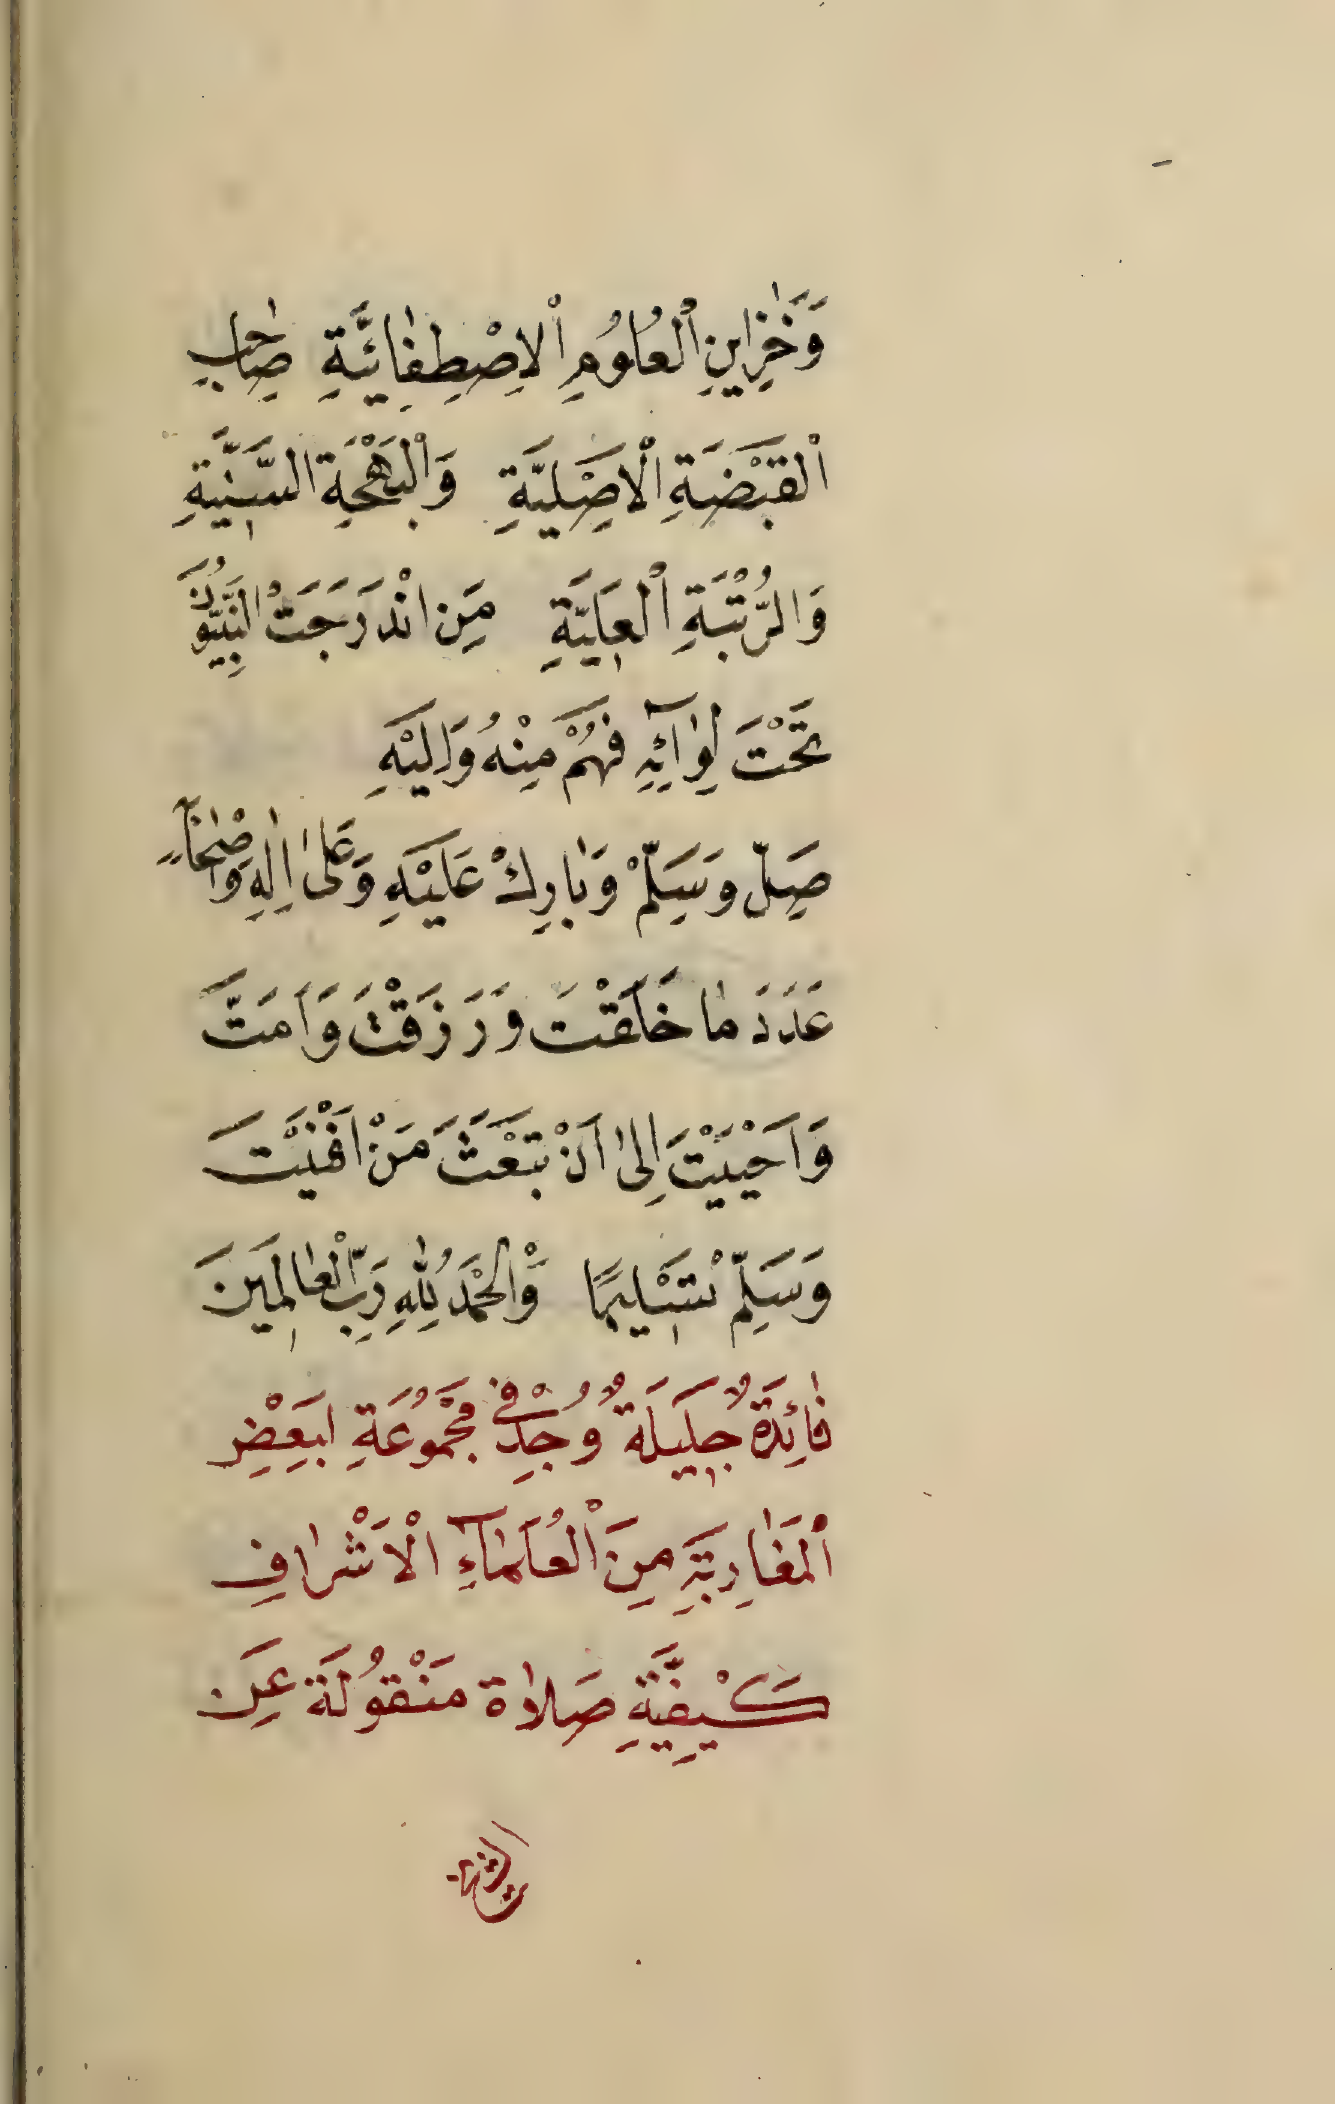 وَخَزَاينِ ٱلْعُلُومِ ٱلْاِصْطِفَائِيَّةِ صَاحِبِ
ٱلْقَبْضَةِ الْاَصْلِيَّةِ وَالْبَهْجَةِ السَّنِيَّةِ
وَالرُّتْبَةِ ٱلْعَلِيَّةِ مَنِ انْدَرَجَتْ النَّبِيُّونَ
تَحْتَ لِوَآئِهِ فَهُمْ مِنْهُ وَاِلَيْهِ
صَلِّ وَسَلِّمْ وَبَارِكْ عَلَيْهِ وَعَلٰى اٰلِهِ وَاَصْحَابِهِ
عَدَدَ مَا خَلَقْتَ وَرَزَقْتَ وَاَمَتَّ
وَاَحْيَيْتَ اِلٰى اَنْ تَبْعَثَ مَنْ اَفْنَيْتَ
وَسَلِّمْ تَسْلِيمًا وَالْحَمْدُ لِلّٰهِ رَبِّ الْعَالَمِينَ
فَائِدَةٌ جَلِيلَةٌ وُجِدْ فِي مَجْمُوعَةِ لِبَعْضِ
ٱلْمَغَارِبَةِ مِنَ ٱلْعُلَمَآءِ الْاَشْرَافِ
كَيْفِيَّةِ صَلَاة مَنْقُولَة عَنِ